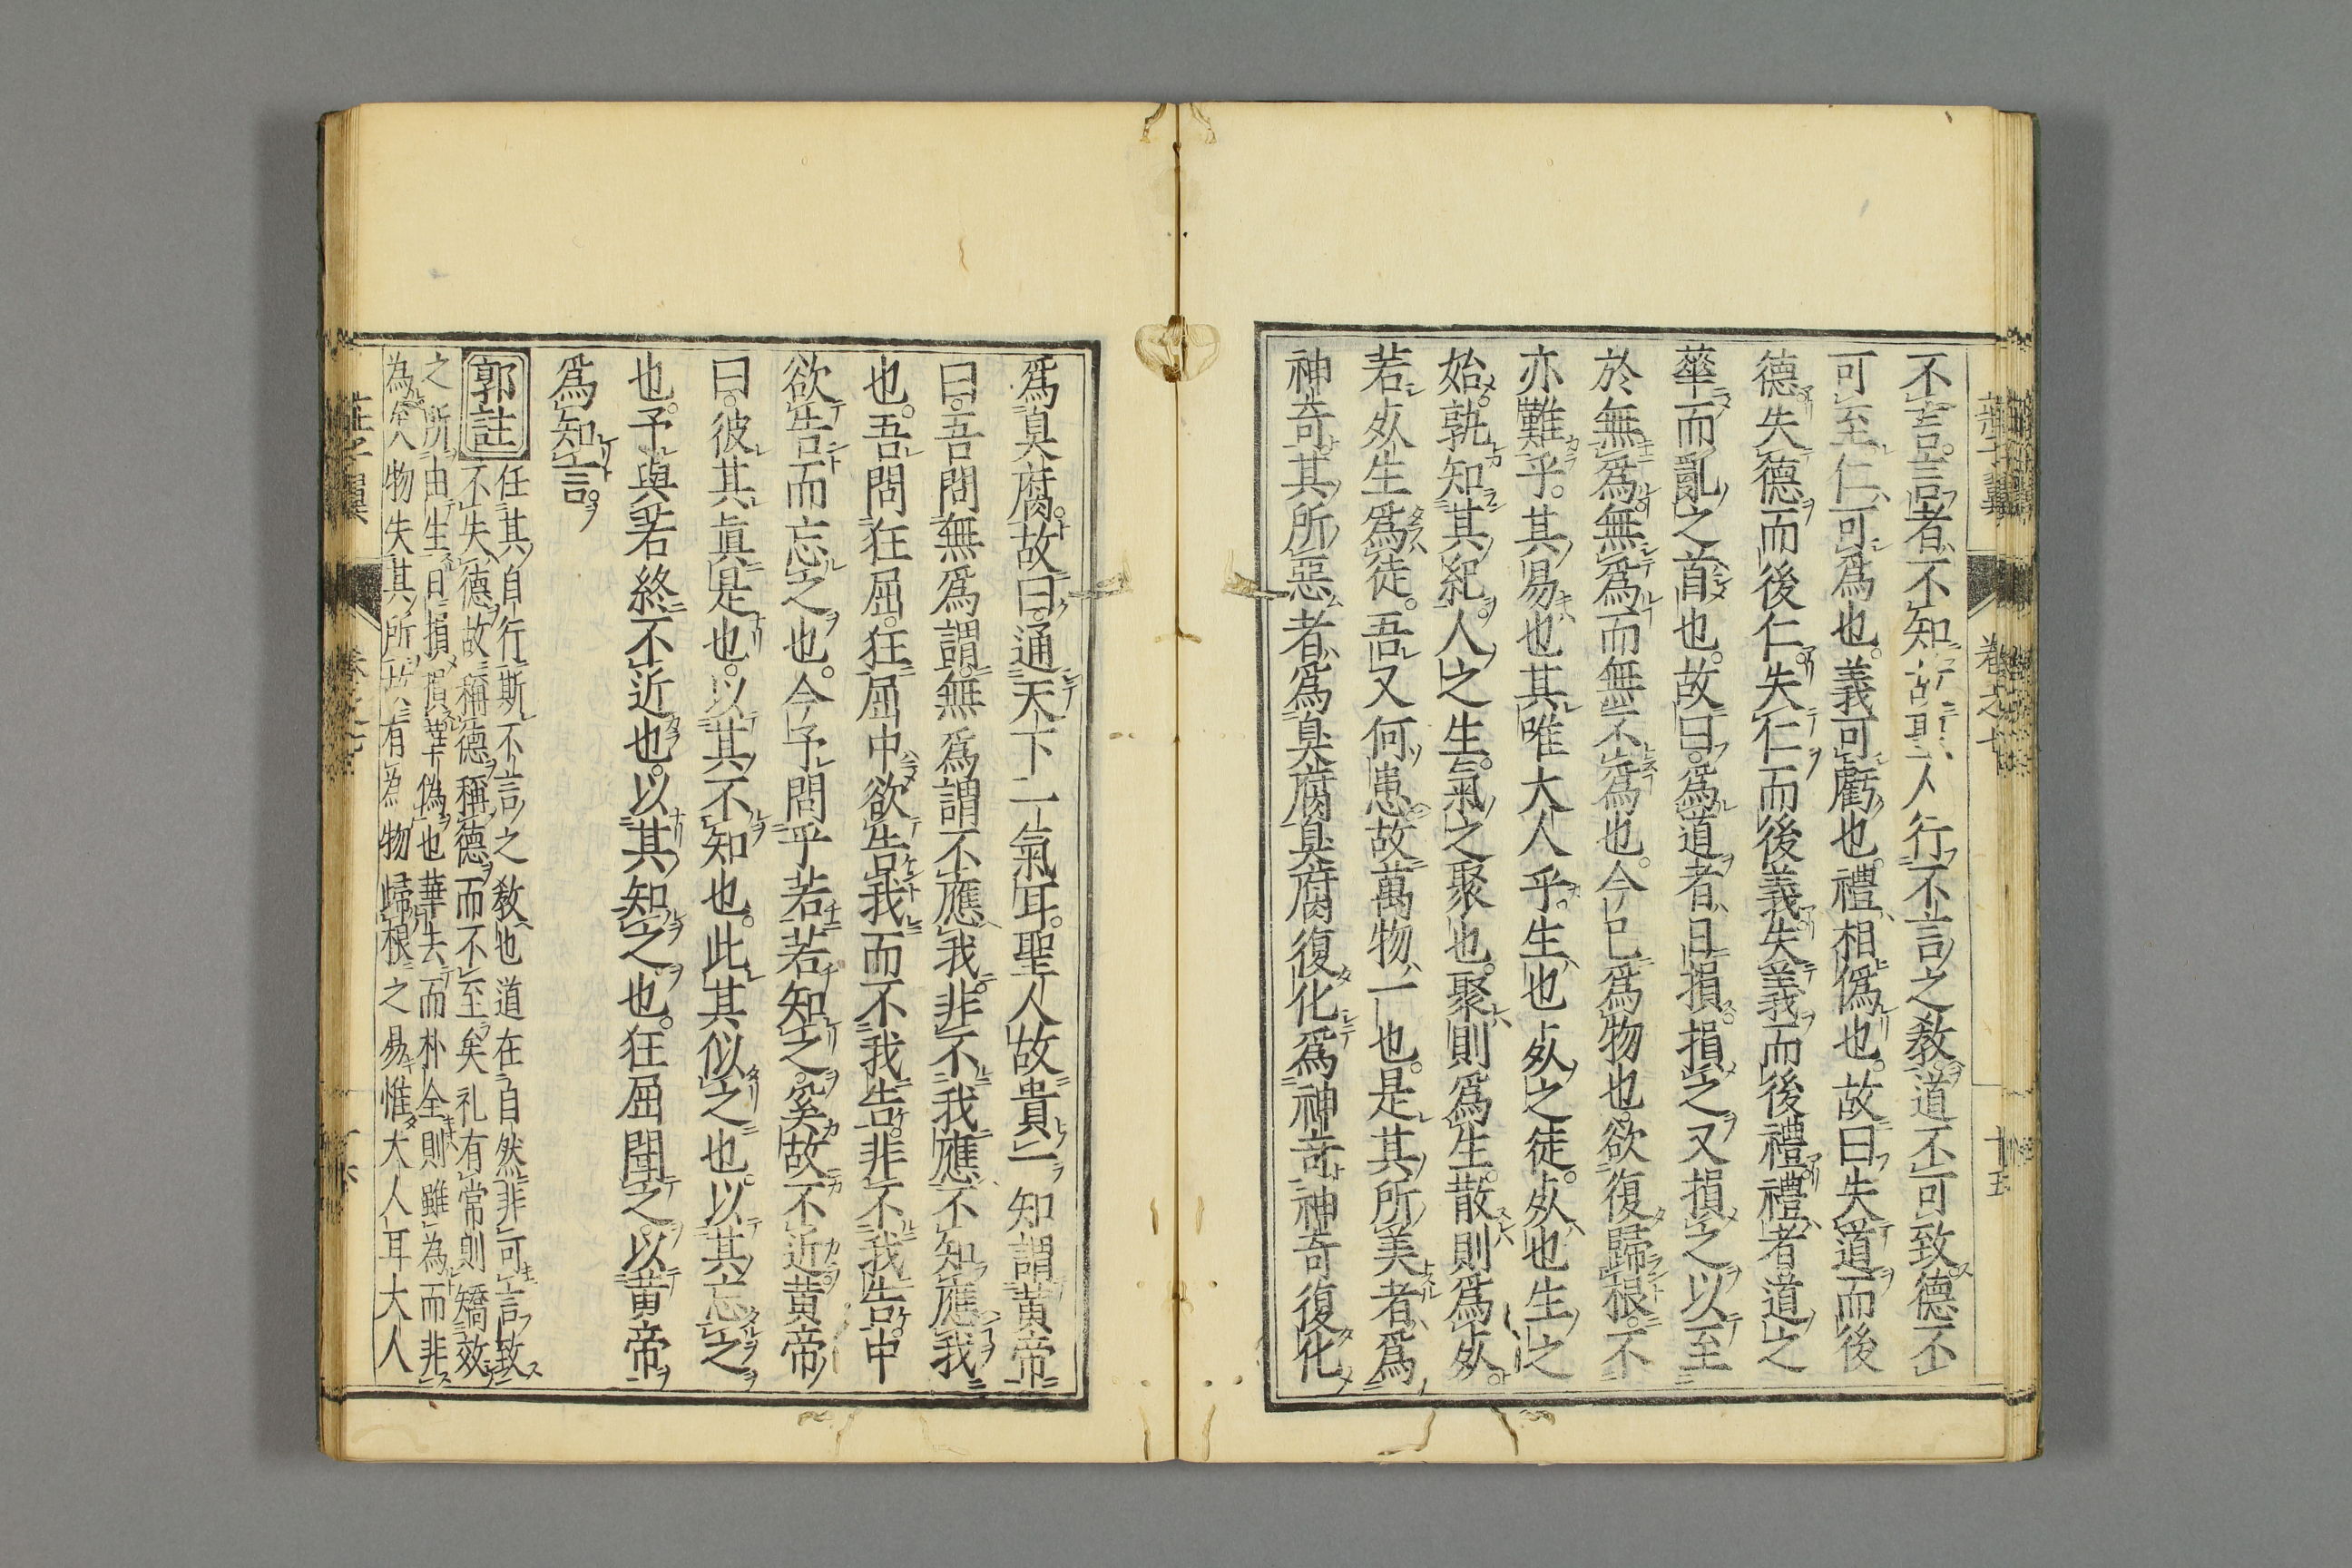 不言言者不知 人行不言之敎道不可致德不
可至仁可爲也義可虧也禮相僞也故曰失道而後
德失德而後仁失仁而後義失義而後禮禮者道之
華而亂之首也故曰爲道者日損損之又損之以至
於無爲無爲而無不爲也今已爲物也欲復歸根不
亦難乎其易也其唯大人乎生也死之徒死也生之
始孰知其紀人之生氣之聚也聚則爲生散則爲死
若死生爲徒吾又何患故萬物一也是其所美者爲
神奇其所惡者爲臭腐臭腐復化爲神奇神奇復化
爲臭腐故曰通天下一氣耳聖人故貴一知謂黃帝
曰吾問無爲謂無爲謂不應我非不我應不知應我
也吾問狂屈狂屈中欲告我而不我告非不我告中
欲告而忘之也今予問乎若若知之奚故不近黃帝
曰彼其眞是也以其不知也此其似之也以其忘之
也予與若終不近也以其知之也狂屈聞之以黃帝
爲知言
郭註
任其自行斯不言之敎也道在自然非可言致
不失德故稱德稱德而不至矣礼有常則矯效
之所由生日損損華僞也華去而朴全則雖為而非
為矣物失其所故有為物歸根之易惟大人耳大人